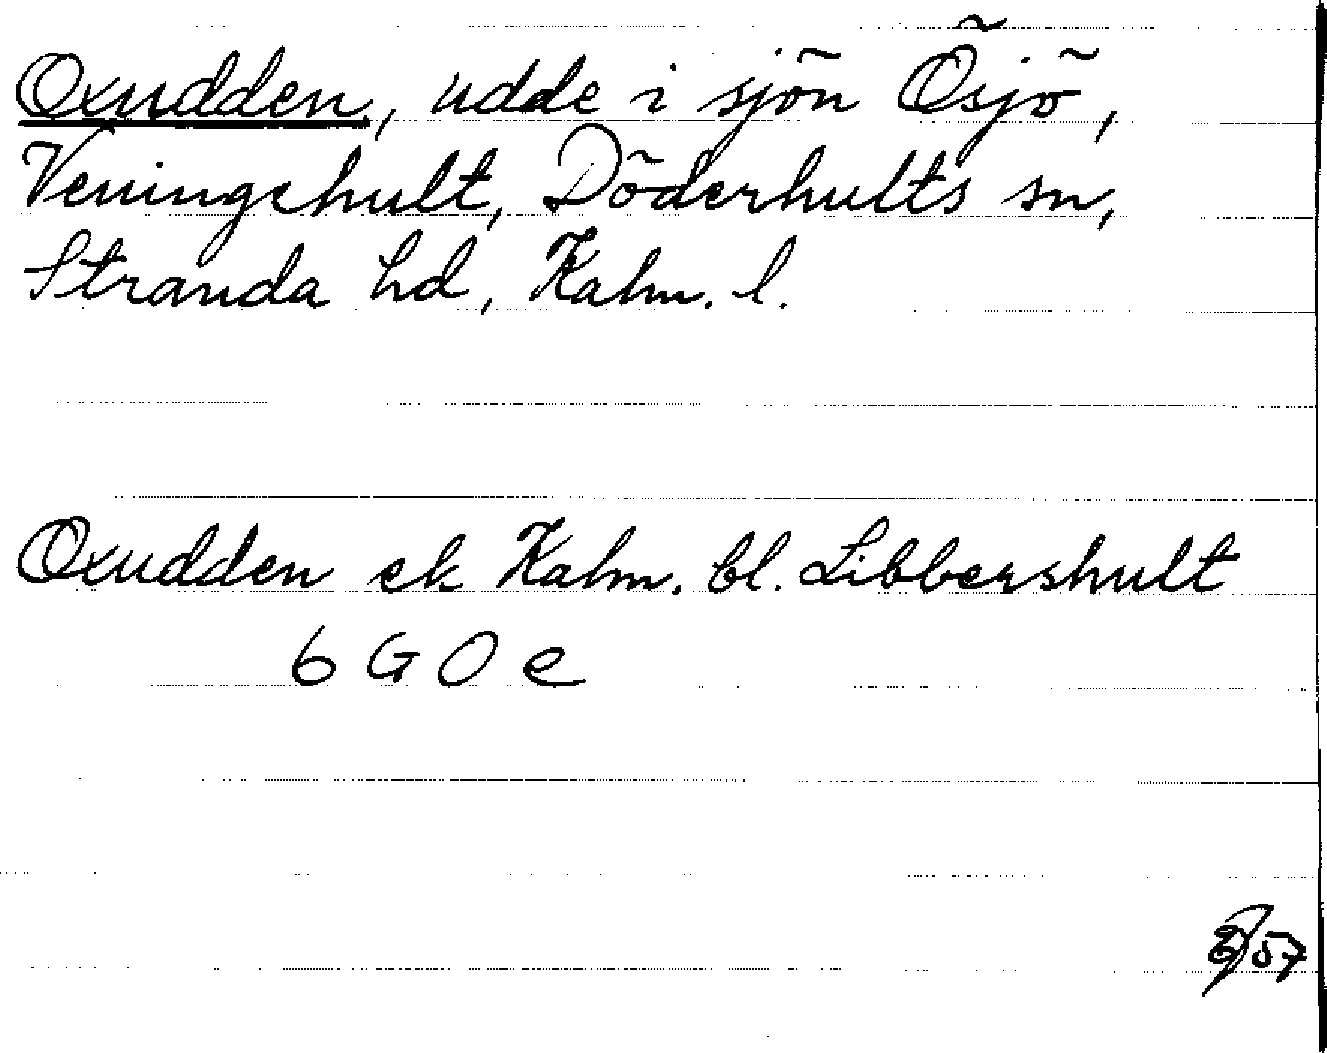 Oxudden, udde i sjön Ösjö,
Veningehult, Döderhults sn,
Stranda hd, Kalm. l.
Oxudden ek Kalm. bl. Libbershult
6 G O e
57